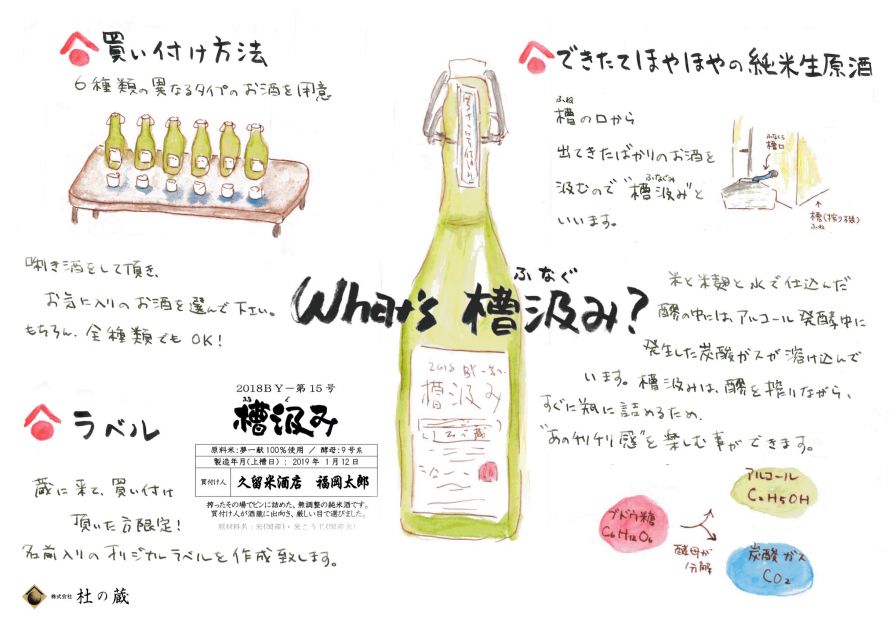 買い付け方法
6種類の異なるタイプのお酒を用意
唎き酒をして頂き、
お気に入りのお酒を選んで下さい。
もちろん、全種類でもOK!
What's 槽汲み?
ふなぐ
できたてほやほやの純米生原酒
ふね
槽の口から
出てきたばかりのお酒を
ふなぐみ
汲むので"槽汲み"と
いいます。
槽口
槽(搾り機)
ふね
米と米麹と水で仕込んだ
醪の中には、アルコール発酵中に
発生した炭酸ガスが溶け込んで
います。槽汲みは、醪を搾りながら、
すぐに瓶に詰めるため、
"あのチリチリ感"を楽しむ事ができます。
ブドウ糖
C6H12O6
酵母が
分解
アルコール
C2H5OH
炭酸ガス
CO2
2018BY
槽汲み
ラベル
蔵に来て、買い付け
頂いた方限定!
名前入りのオリジナルラベルを作成致します。
2018BY-第15号
ふな ぐ
槽汲み
原料米:夢一献100%使用 / 酵母:9号系
製造年月(上槽日):2019年 1月12日
買付け人 久留米酒店 福岡太郎
搾ったその場でビンに詰めた、無調整の純米酒です。
買付け人が酒蔵に出向き、厳しい目で選びました。
原材料名:米(国産)・米こうじ(国産米)
株式会社 杜の蔵